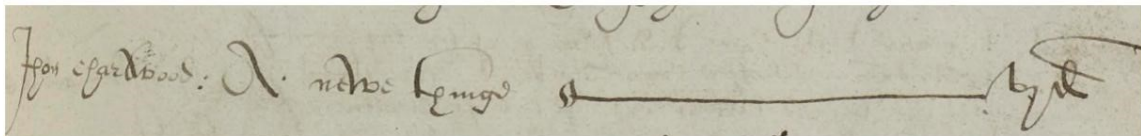 Jhon charwood : A newe thinge vjd